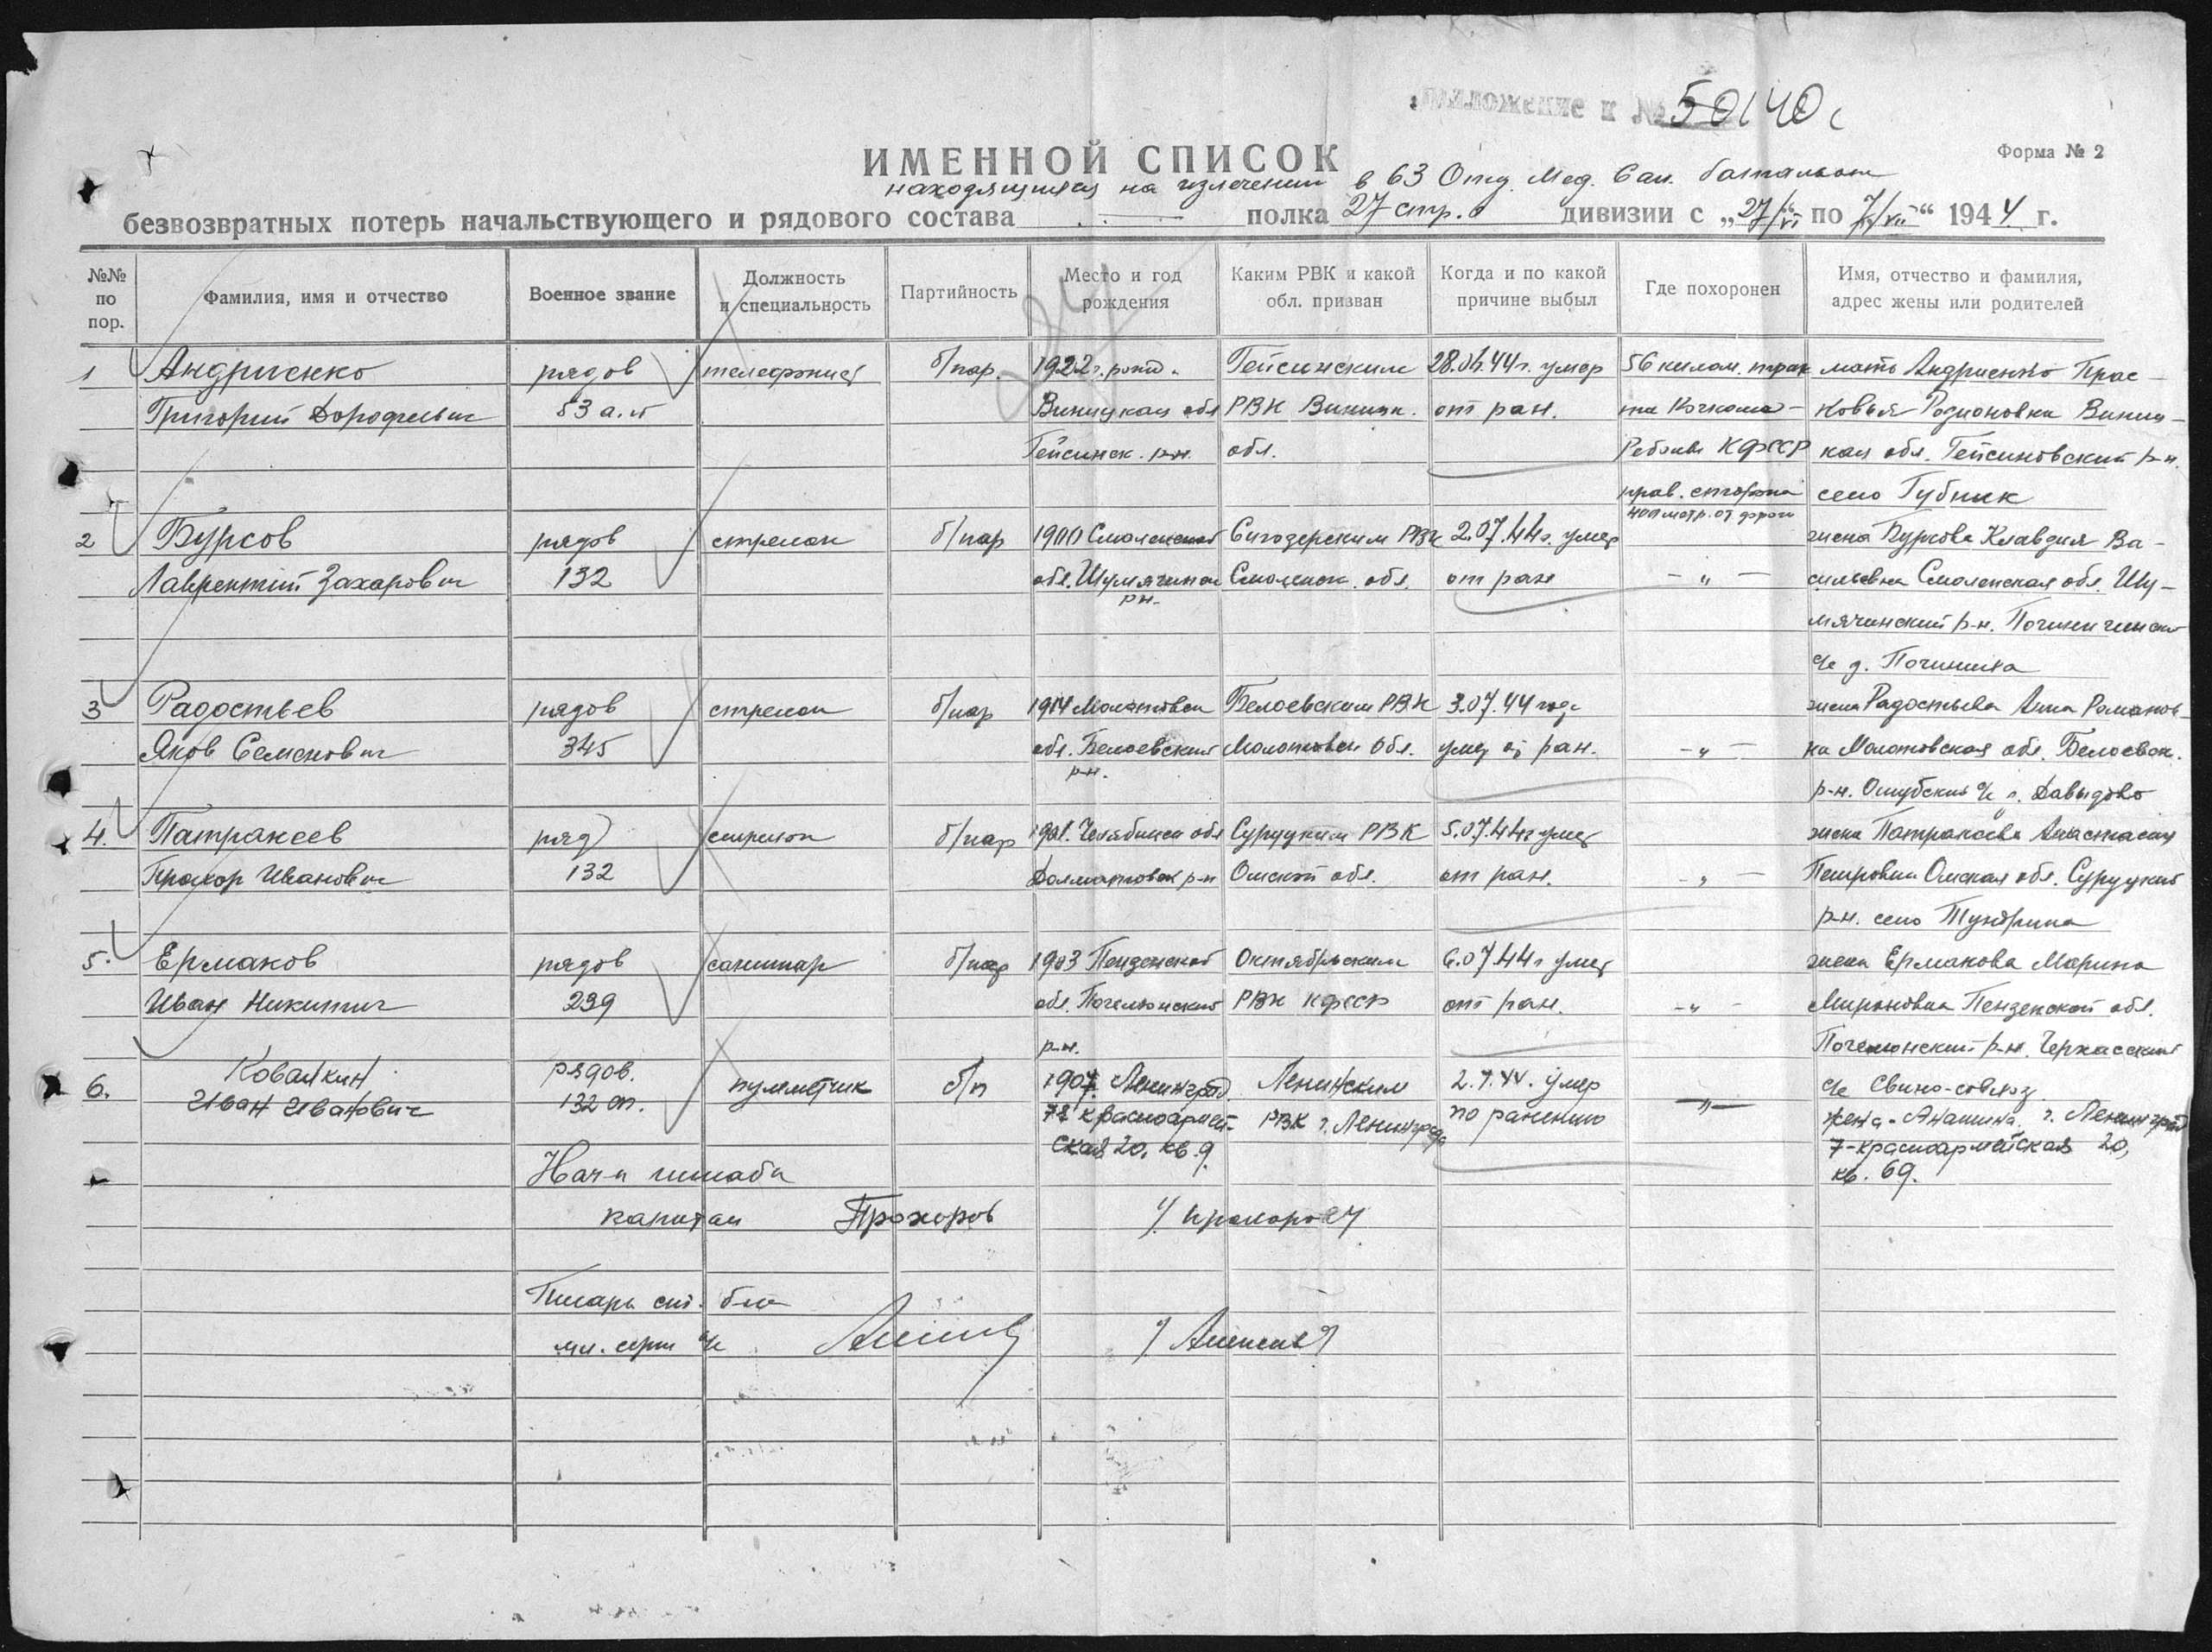 приложение к № 50140с
Форма № 2
ИМЕННОЙ СПИСОК
находящихся на излечении в 63 Отд. Мед. Сан. батальоне
безвозвратных потерь начальствующего и рядового состава — полка 27 стр. дивизии с „27/VI по 7/VII“ 1944 г.
№№ по пор.
Фамилия, имя и отчество
Военное звание
Должность и специальность
Партийность
Место и год рождения
Каким РВК и какой обл. призван
Когда и по какой причине выбыл
Где похоронен
Имя, отчество и фамилия, адрес жены или родителей
1 Андриенко рядов телефонист б/пар. 1922 г. рожд. Гейсинским 28.06.44 г. умер 56 килом. трак мать Андриенко Прас-
Григорий Дорофеевич 53 а.п Виницкая обл РВК Виницк. от ран. та Кочкома- ковья Родионовна Виниц-
Гейсинск. р-н. обл. Реболы КФССР кая обл. Гейсиновский р-н.
прав. сторона село Губник
400 метр. от дороги
2 Бурсов рядов стрелок б/пар 1900 Смоленской РВК 2.07.44 г. умер жена Бурсова Клавдия Ва-
Лаврентий Захарович 132 обл. Шумячинск Смоленск. обл. от ран — „ — сильевна Смоленская обл. Шу-
рн.
мячинский р-н.
с/с д. Починика
3 Радостьев рядов стрелок б/пар 1914 Молотовск Белоевским РВК 3.07.44 года жена Радостьева Анна Романов-
Яков Семенович 345 обл. Белоевский Молотовск обл. умер от ран. — „ — на Молотовская обл. Белоевск.
р-н.
р-н. Ошубский с/с д. Давыдово
4. Патракеев ряд стрелок б/пар 1901. Челябинск обл Сургуцким РВК 5.07.44 г умер жена Патракеева Анастасия
Прохор Иванович 132 Долматовск р-н Омской обл. от ран. — „ — Петровна Омская обл. Сургуцкий
р-н. село Тундрина
5. Ермаков рядов санитар б/пар 1903 Пензенской Октябрьским 6.07.44 г умер жена Ермакова Марина
Иван Никитич 239 обл. Почелмский РВК КФССР от ран. — „ — Мироновна Пензенской обл.
р-н. р-н. Черкасский
6. Ковалкин рядов. пулеметчик б/п 1907. Ленинград Ленинским 2.7.44. умер с/с Свино-совхоз
Иван Иванович 132 сп. 7я красноармей- РВК г. Ленинграда по ранению — „ — жена - г. Ленинград
ская 20, кв. 9. 7-красноармейская 20,
кв. 69.
Нач-к штаба
капитан Прохоров / Прохоров /
Писарь б-на
мл. серж м/с / Алексеев /